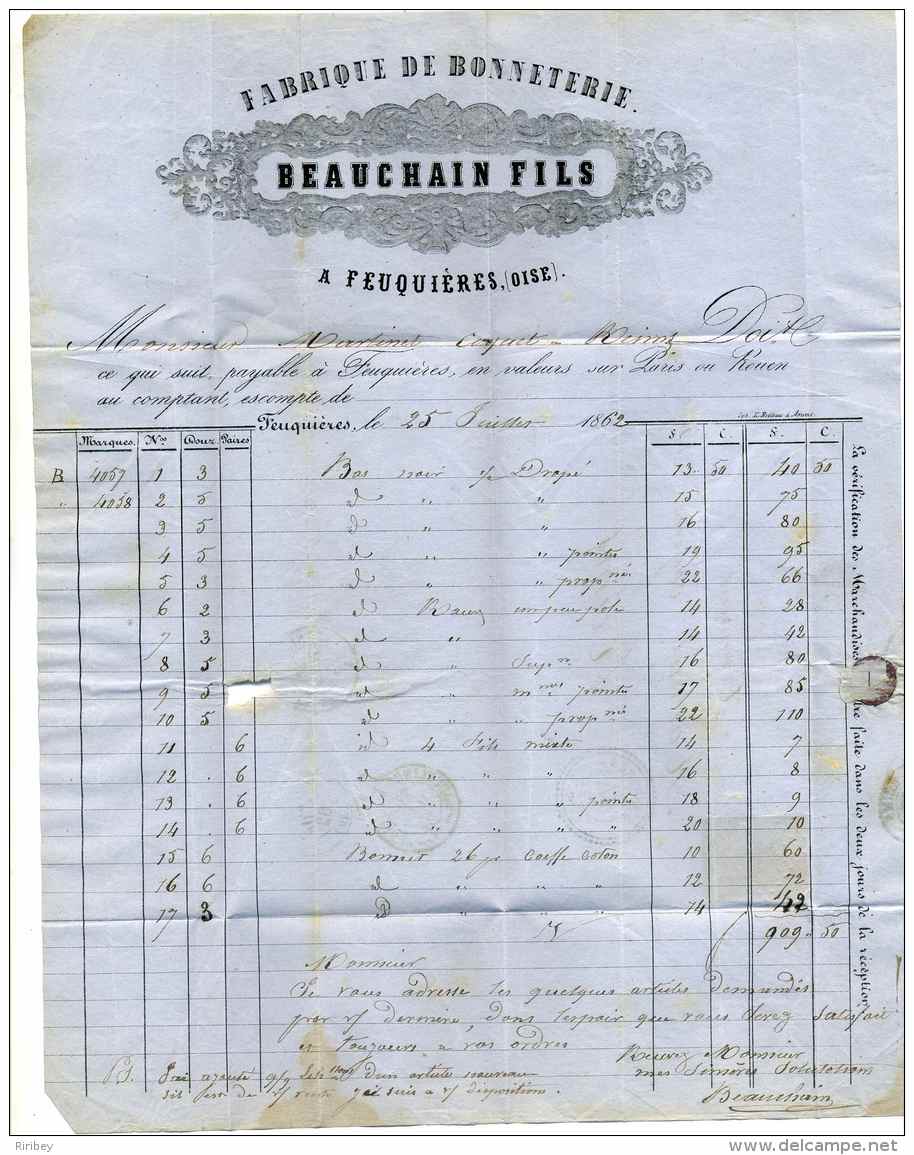 FABRIQUE DE BONNETERIE.
BEAUCHAIN FILS
A FEUQUIÈRES, (OISE).
Monsieur Martinet Coquet a Reims Doit
ce qui suit, payable à Feuquières, en valeurs sur Paris ou Rouen
au comptant, escompte de
Feuquières, le 25 Juillet 1862
Marques. Nos Douz. Paires F. C. F. C.
B 4057 1 3 Bas noir Drapé 13 50 40 50
" 4058 2 5 id " " 15 75
3 5 id " " 16 80
4 5 id " " pointes 19 95
5 3 id " " 22 66
6 2 id 14 28
7 3 id " 14 42
8 5 id " Supre 16 80
9 5 id " pointes 17 85
10 5 id " " 22 110
11 6 id 4 fils mixte 14 7
12 . 6 id " " " 16 8
13 . 6 id " " " pointes 18 9
14 . 6 id " " " " 20 10
15 6 Bonnet 26 coeffe coton 10 60
16 6 id " " " 12 72
17 3 " " " 14 42
909 " 50
La vérification des Marchandises être faite dans les deux jours de la réception
Monsieur
Je vous adresse les quelques articles demandés
par v/ dernière, dans l'espoir que vous serez satisfait
et toujours a vos ordres
Recevez Monsieur
mes Sincères Salutations
Beauchain
PS. J'ai ajouté d'un article nouveau
a v/ disposition.
Riribey
www.delcampe.net